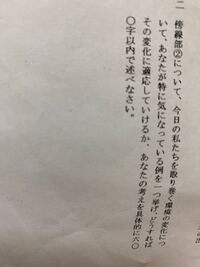 二 傍線部②について、今日の私たちを取り巻く環境の変化につ
いて、あなたが特に気になっている例を一つ挙げ、どうすれば
その変化に適応していけるか、あなたの考えを具体的に六〇
〇字以内で述べなさい。